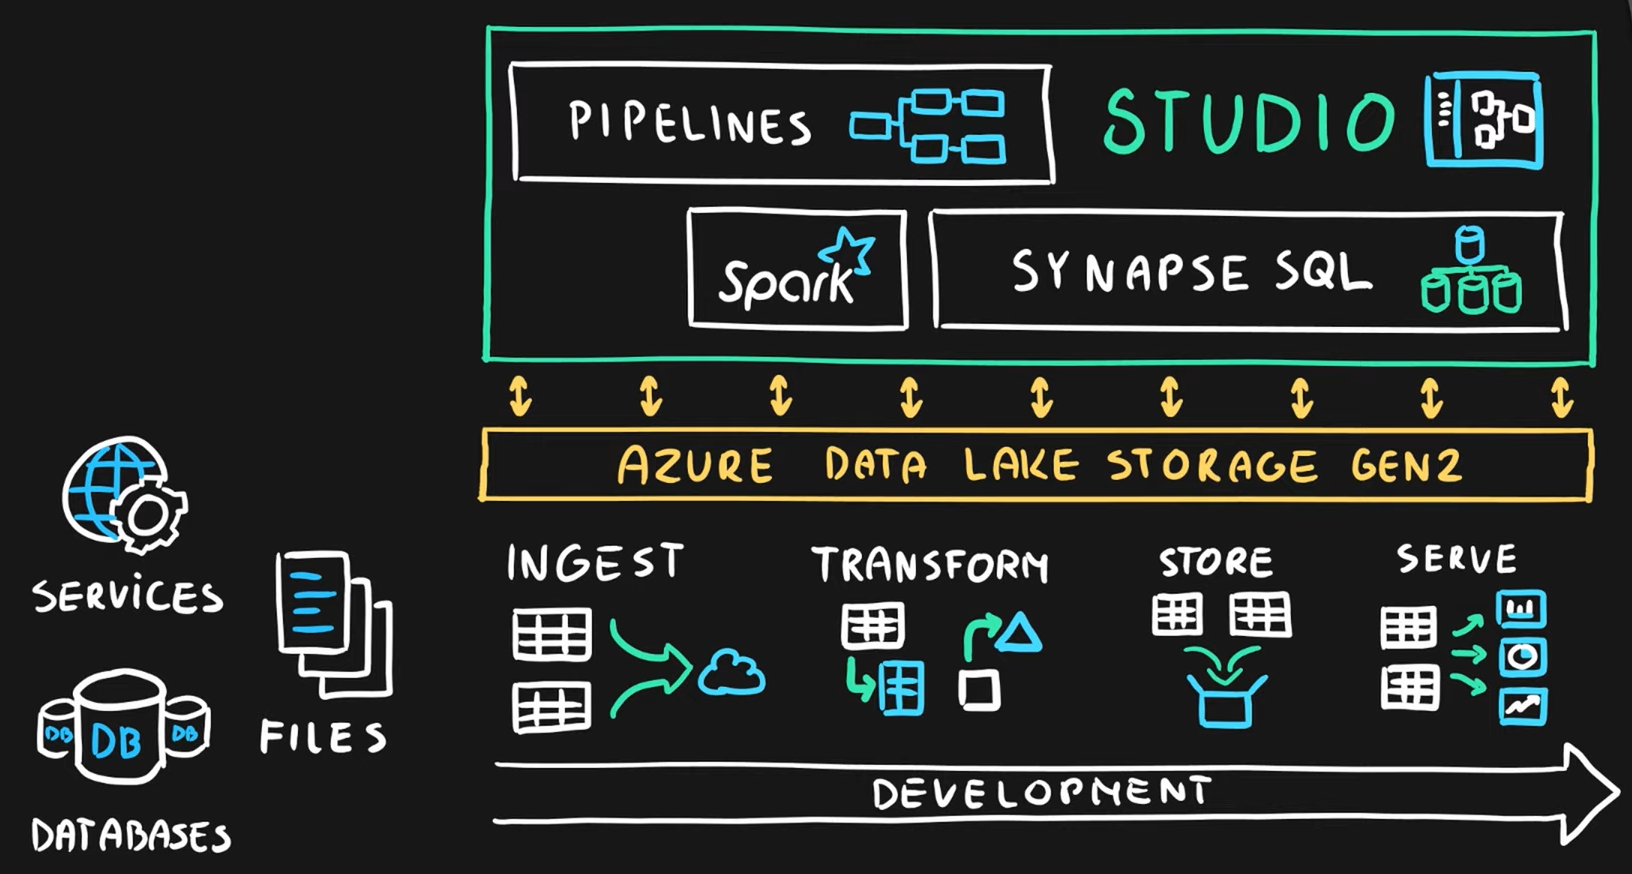 PIPELINES
STUDIO
Spark
SYNAPSE SQL
AZURE DATA LAKE STORAGE GEN2
SERVICES
FILES
DB
DB
DB
DATABASES
INGEST
TRANSFORM
STORE
SERVE
DEVELOPMENT